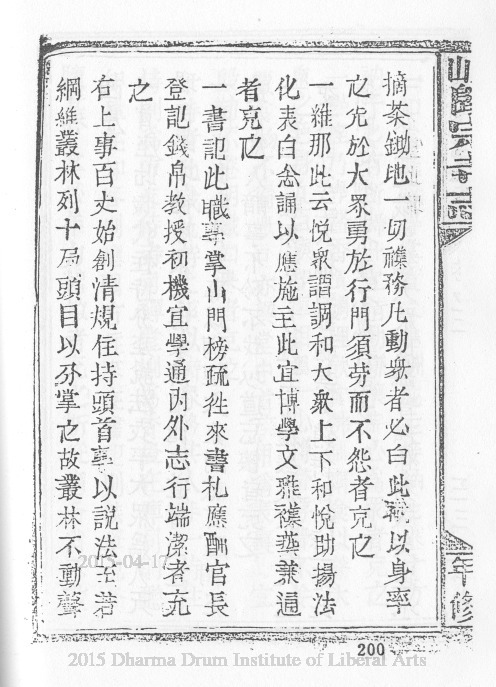 摘茶鋤地一切襍務凡動衆者必白此職以身率
之先於大眾勇於行門須勞而不怨者充之
一維那此云悅衆謂調和大衆上下和悅助揚法
化表白念誦以應施主此宜博學文雅襍藝兼通
者充之
一書記此職專掌山門榜疏徃來書札應酬官長
登記錢帛教授初機宜學通内外志行端潔者充
之
右上事百丈始創清規住持頭首專以説法至若
綱維叢林列十局頭目以分掌之故叢林不動聲
年修
200
2015-04-17
2015 Dharma Drum Institute of Liberal Arts